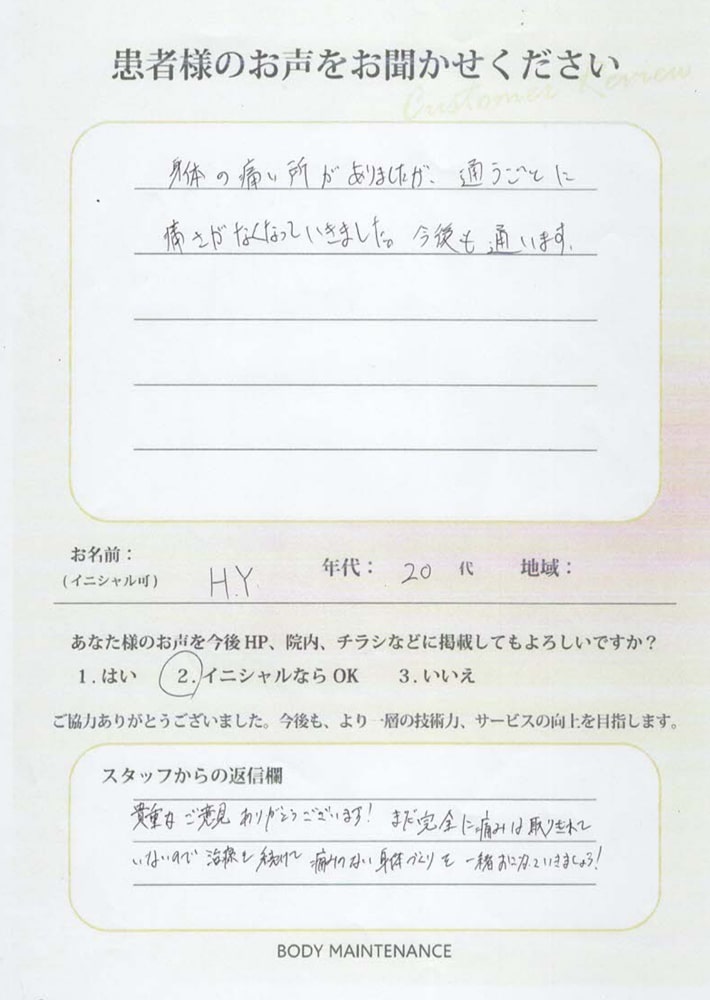 患者様のお声をお聞かせください
Customer Review
身体の痛い所がありましたが、通うごとに
痛さがなくなっていきました。今後も通います。
お名前：
(イニシャル可)
H.Y.
年代： 20 代 地域：
あなた様のお声を今後 HP、院内、チラシなどに掲載してもよろしいですか？
1 . はい 2 . イニシャルなら OK 3 . いいえ
ご協力ありがとうございました。今後も、より一層の技術力、サービスの向上を目指します。
スタッフからの返信欄
貴重なご意見ありがとうございます！ まだ完全に痛みは取りきれて
いないので 治療を続けて 痛みのない身体づくりを 一緒に
BODY MAINTENANCE